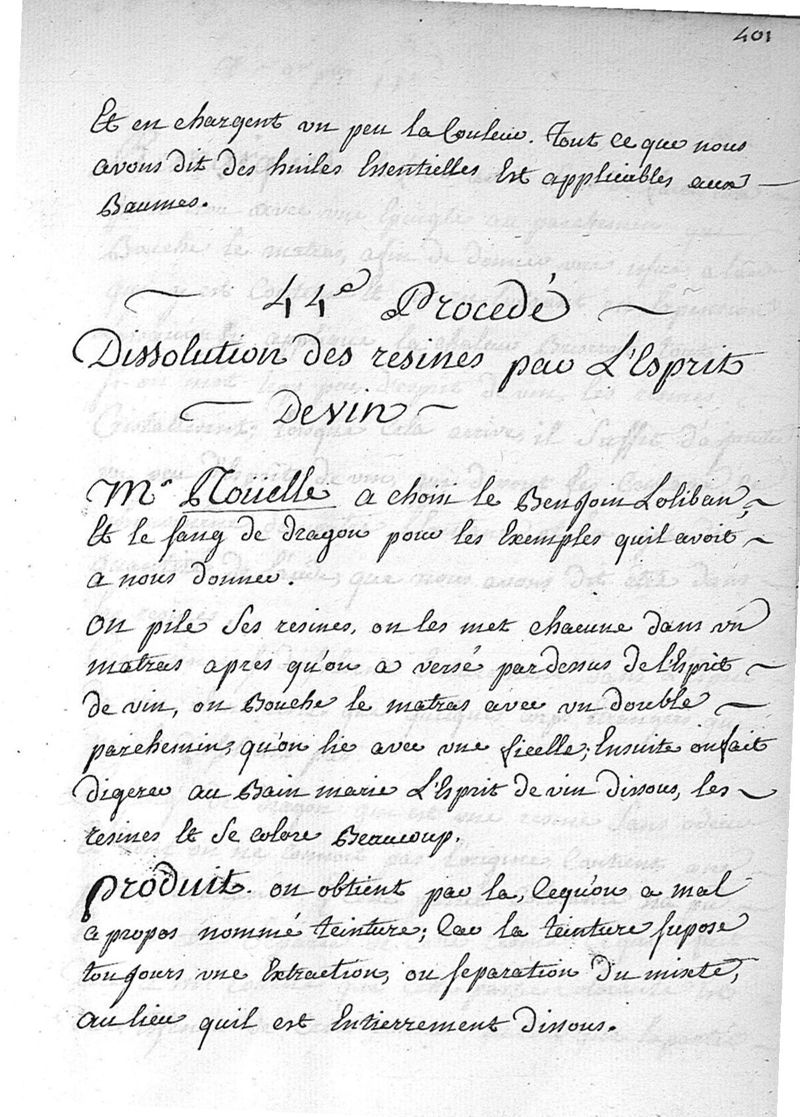 401
Et en chargent un peu la Couleur. Tout ce que nous
avons dit des huiles Essentielles Est applicables aux
Baumes.
44e Procedé
Dissolution des resines par L'Esprit
De vin
Mr Rouelle a choisi le Benjoin Loliban,
Et le sang de dragon pour les Exemples quil avoit
a nous donner.
On pile Ses resines, on les met chacune dans un
matras apres qu'on a versé par dessus de l'Esprit
de vin, on Bouche le matras avec un double
parchemin, qu'on lie avec une ficelle; Ensuite on fait
digerer au Bain marie L'Esprit de vin dissous, les
resines Et Se colore Beaucoup.
Produit. on obtient par la, Ce qu'on a mal
a propos nommé teinture; Car la teinture supose
toujours une Extraction, ou separation Du mixte,
au lieu quil est Entierrement dissous.